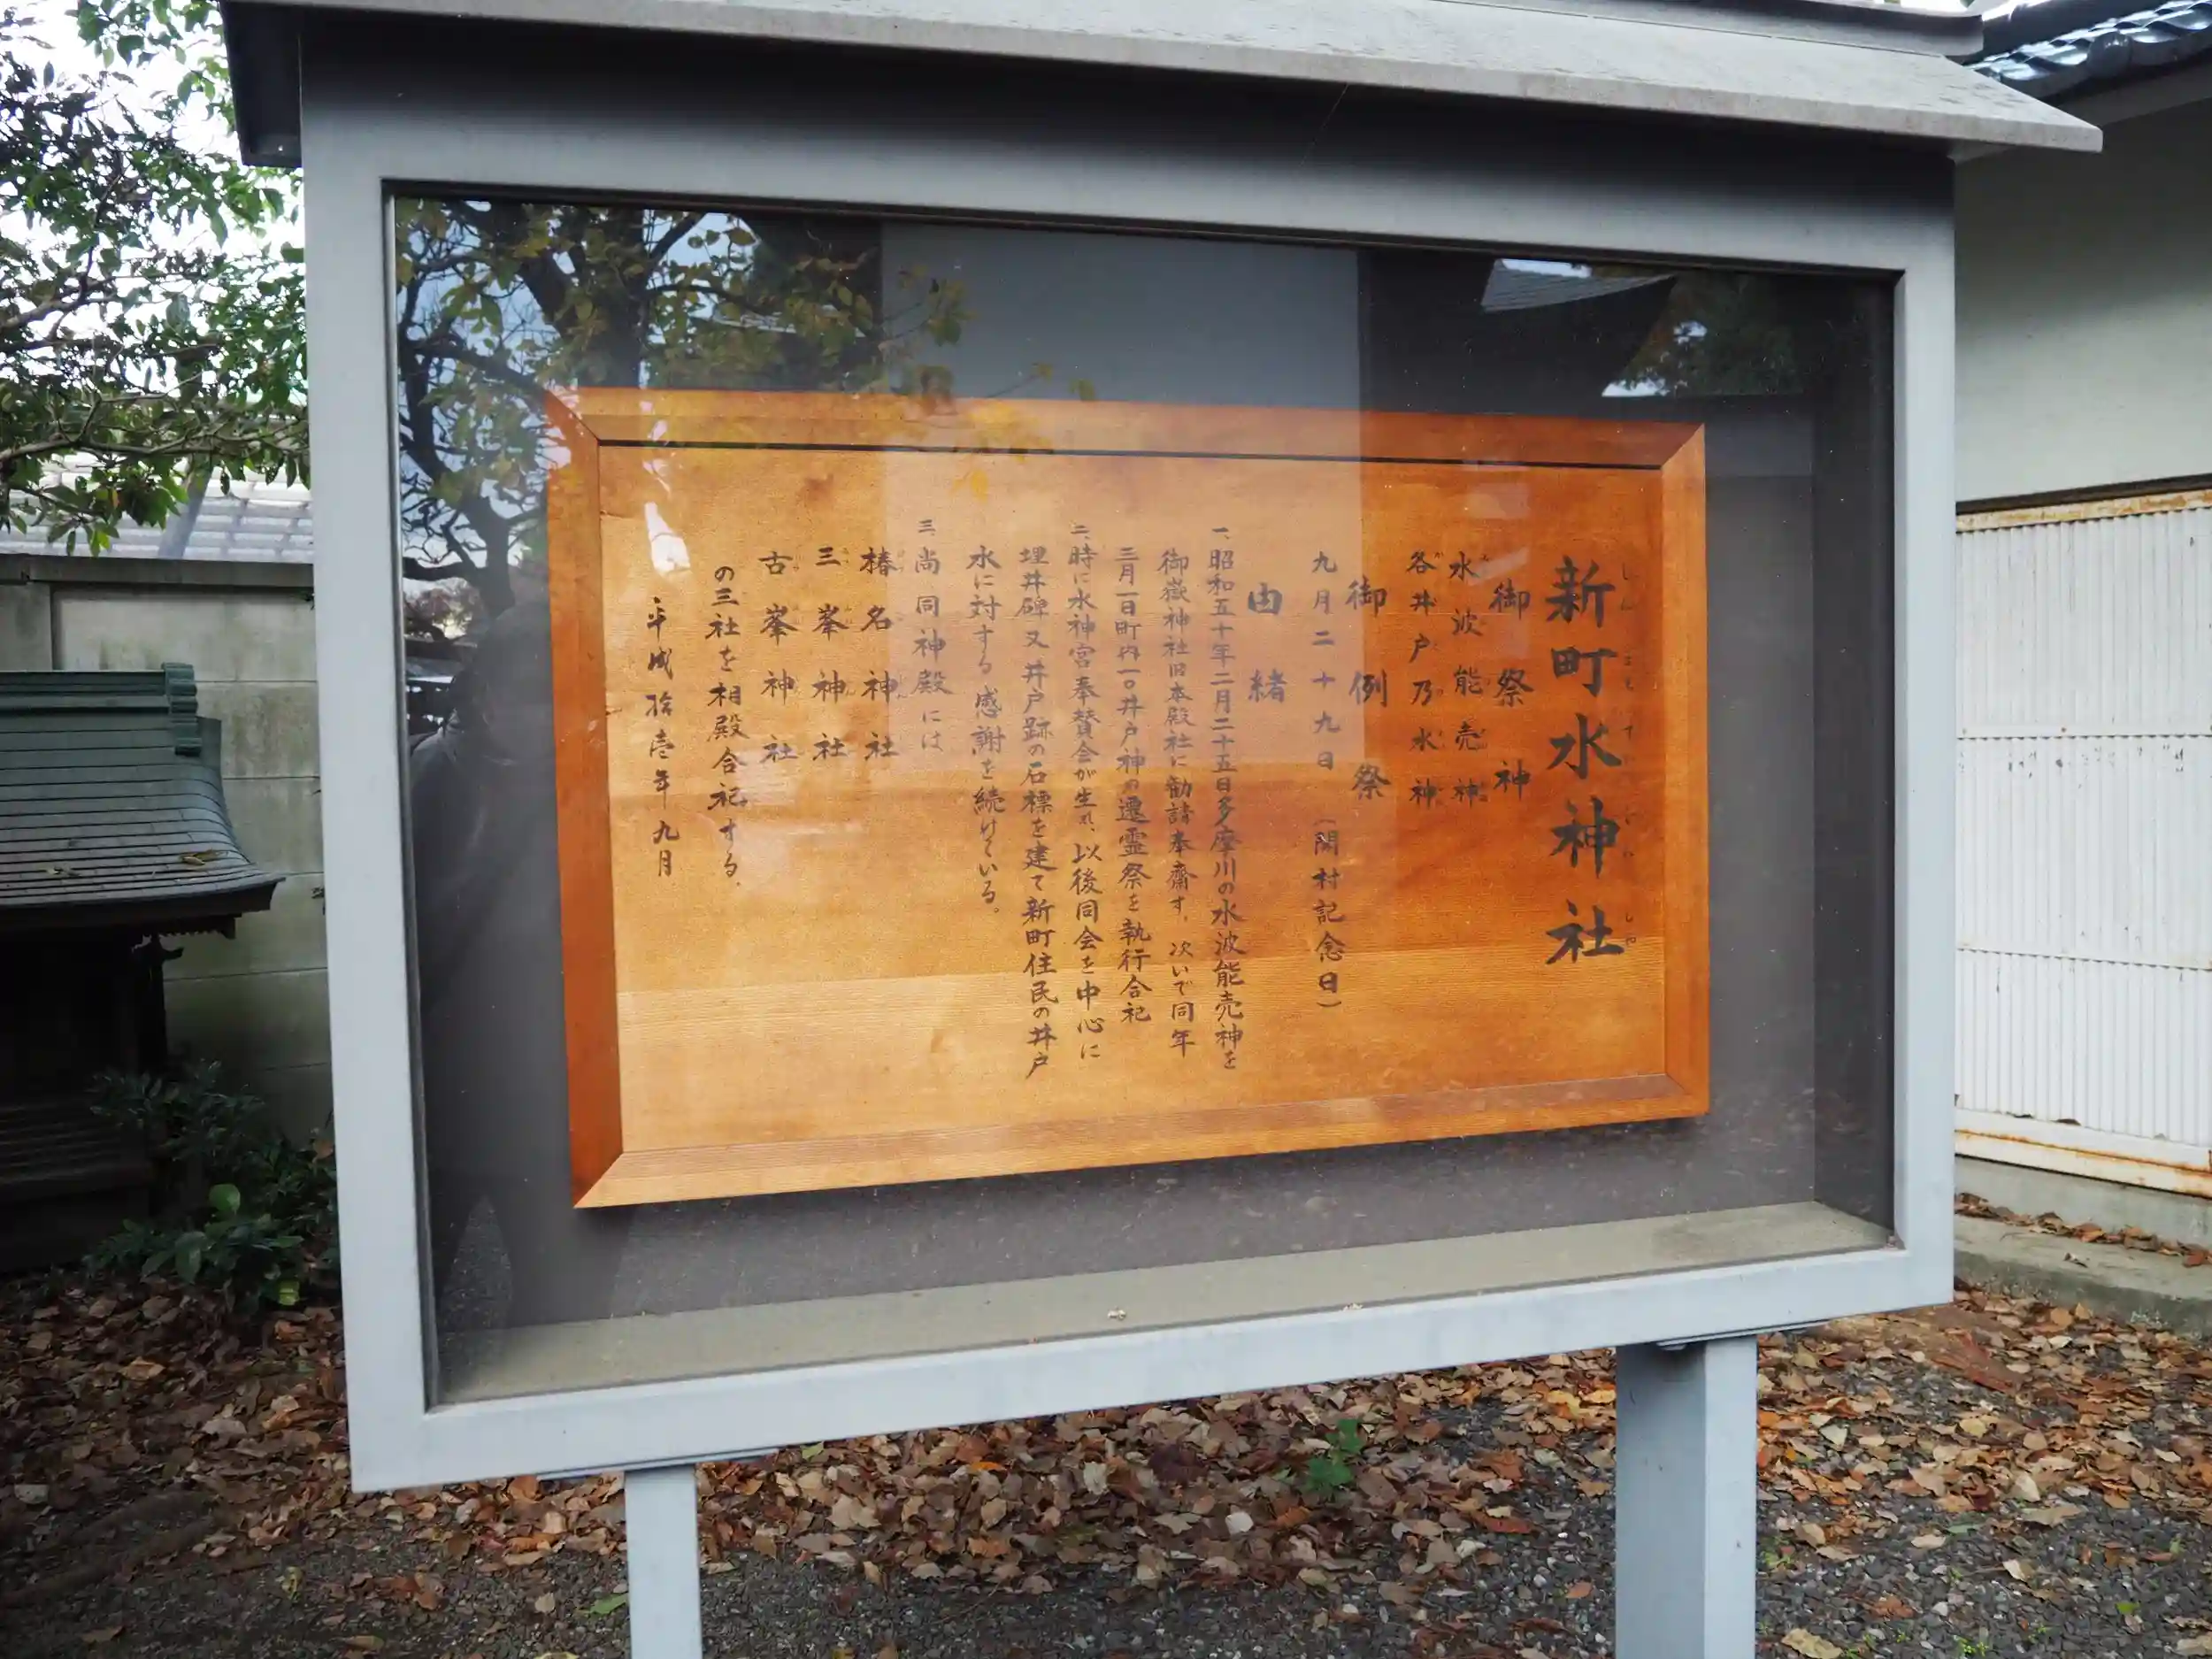 新町水神社
しんまちすいじんしゃ
御祭神
水波能売神
各井戸乃水神
御例祭
九月二十九日（開村記念日）
由緒
一、昭和五十年二月二十五日多摩川の水波能売神を
御嶽神社旧本殿社に勧請奉齋す。次いで同年
三月一日町内一〇井戸神の遷霊祭を執行合祀
二、時に水神宮奉賛会が生れ、以後同会を中心に
埋井碑又井戸跡の石標を建て新町住民の井戸
水に対する感謝を続けている。
三、尚同神殿には
椿名神社
三峯神社
古峯神社
の三社を相殿合祀する。
平成拾壱年九月